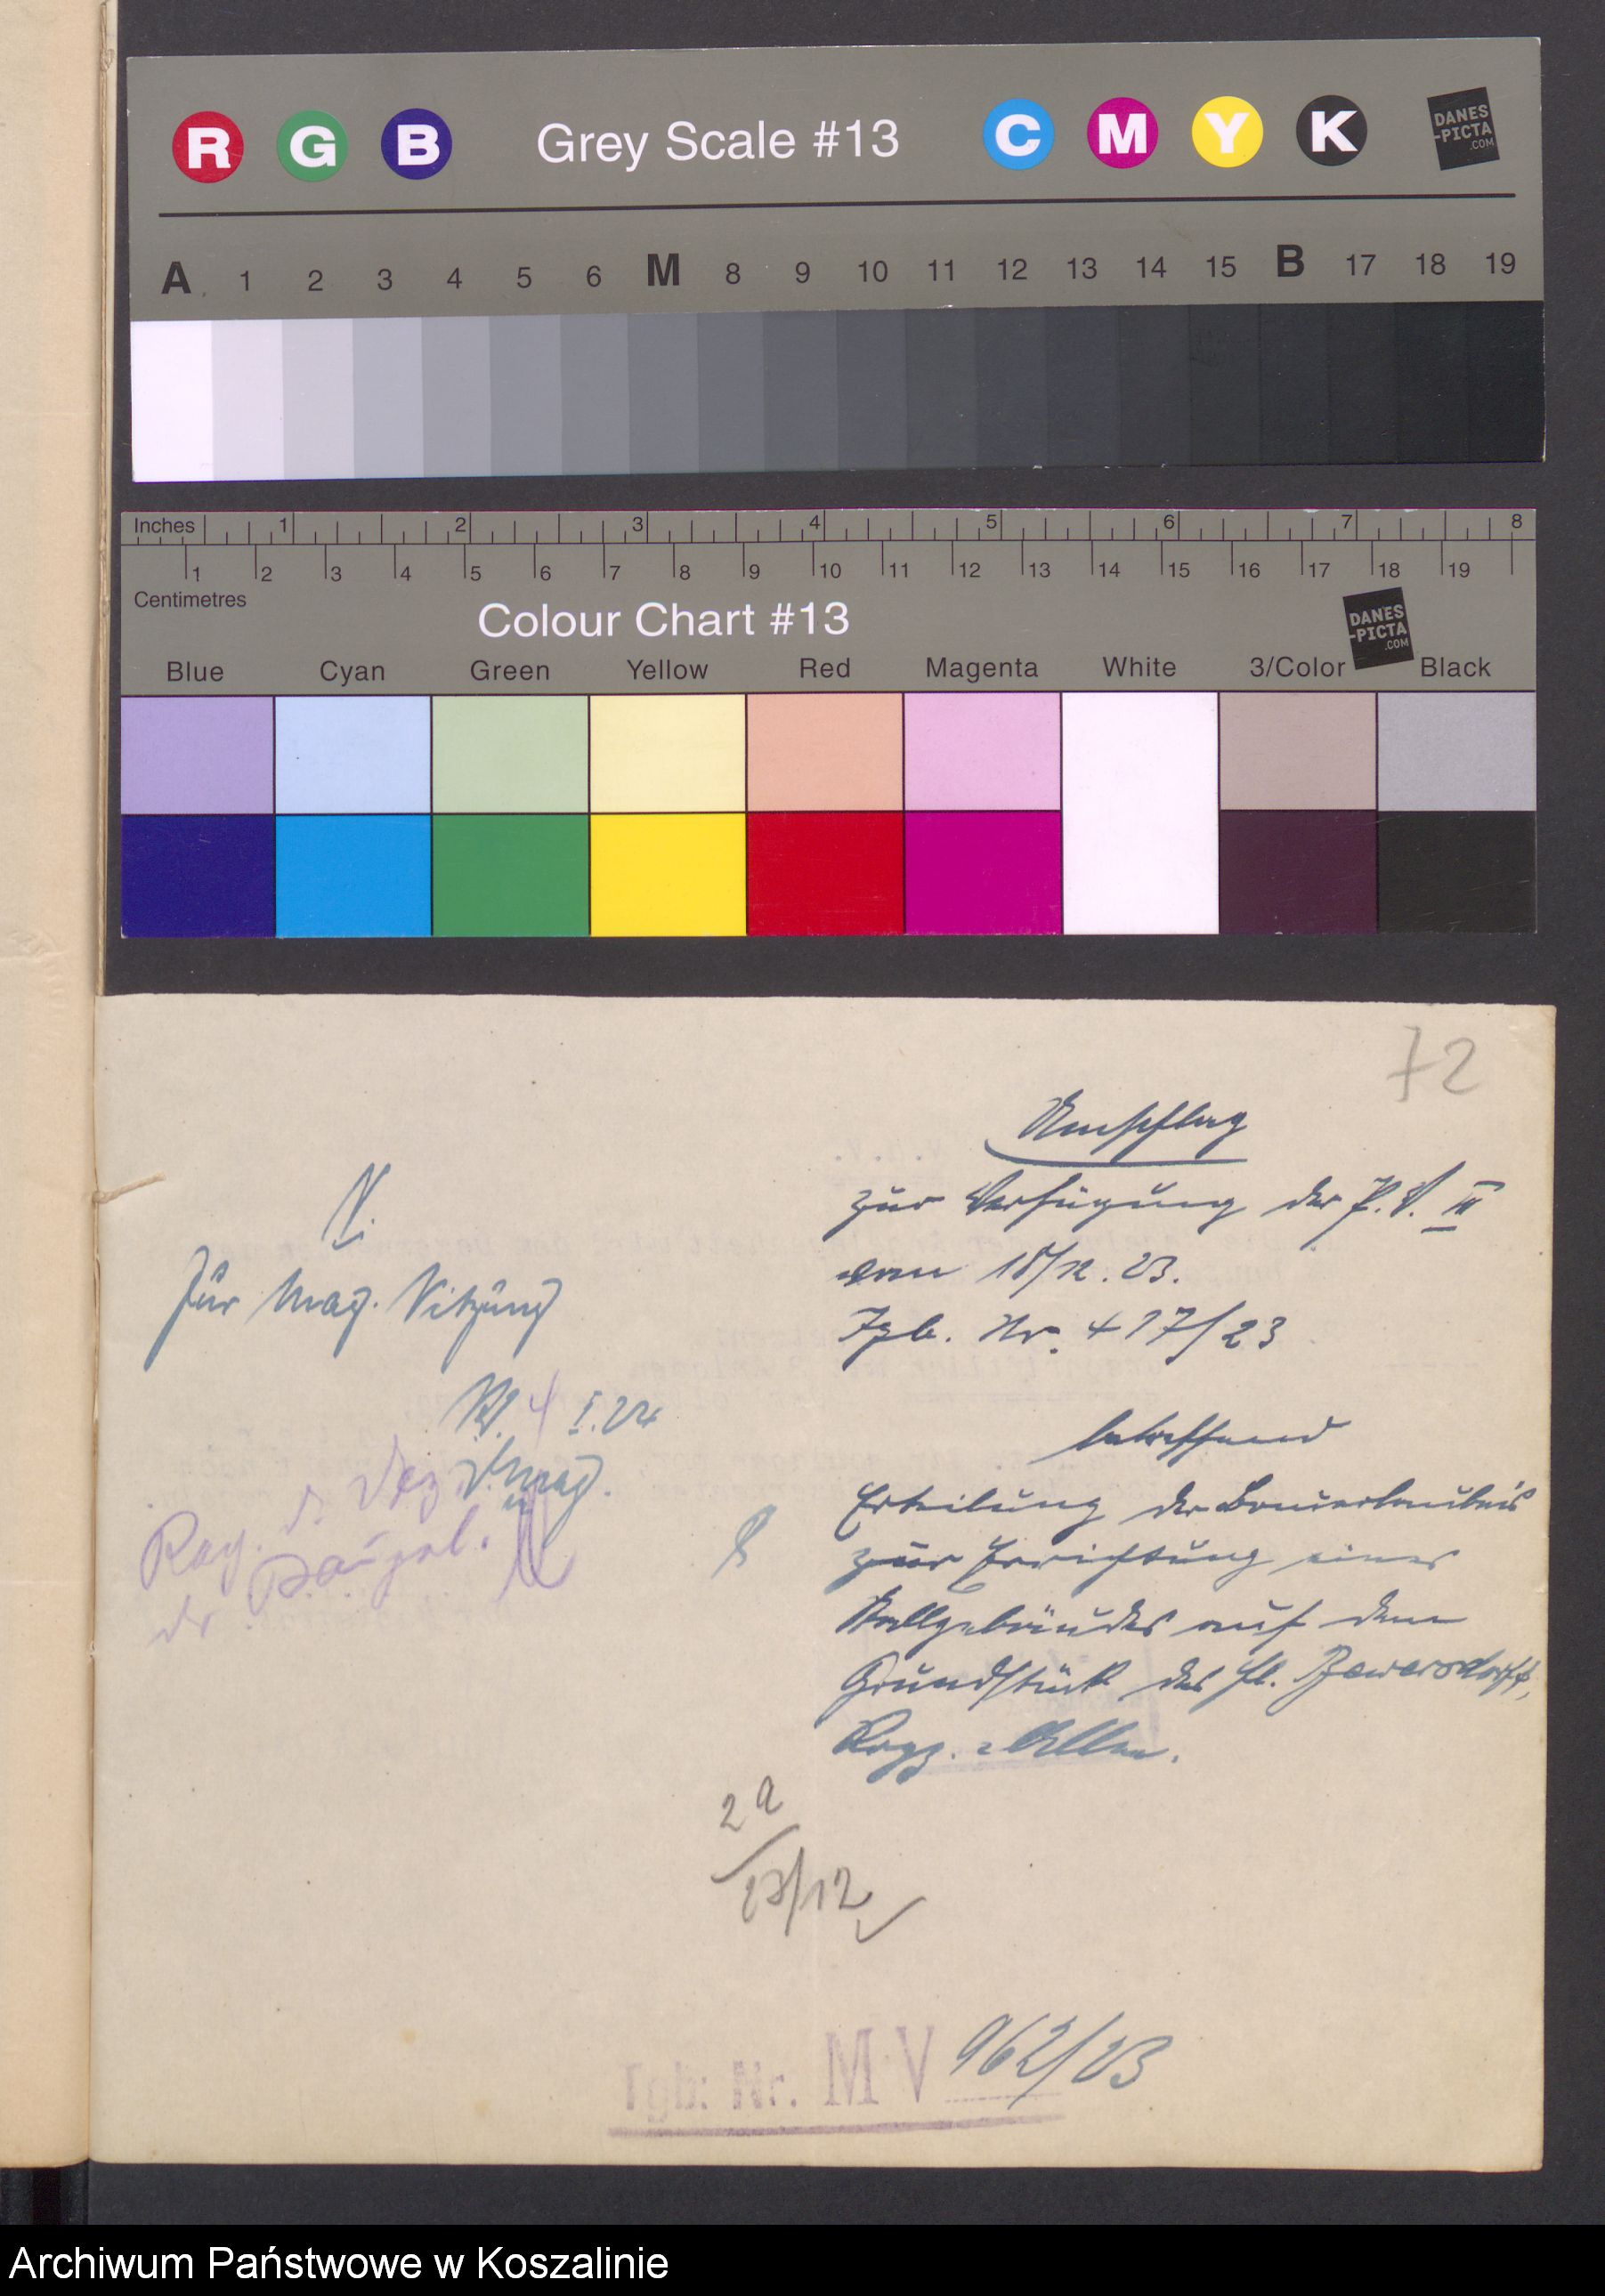 R G B Grey Scale #13 C M Y K DANES -PICTA .COM
A 1 2 3 4 5 6 M 8 9 10 11 12 13 14 15 B 17 18 19
Inches 1 2 3 4 5 6 7 8
1 2 3 4 5 6 7 8 9 10 11 12 13 14 15 16 17 18 19
Centimetres
Colour Chart #13 DANES -PICTA .COM
Blue Cyan Green Yellow Red Magenta White 3/Color Black
72
Umschlag
zur Verfügung der P.V. III
vom 18/12.23.
Tgb. Nr. 417/23
betreffend
Erteilung der Bauerlaubnis
zur Errichtung eines
Stallgebäudes auf dem
Grundstück des Hl.
V.
Für Mag. Sitzung
4 I. 24
D. Mag.
d. Dez.
2a
27/12
Tgb: Nr. M V 962/23
Archiwum Państwowe w Koszalinie